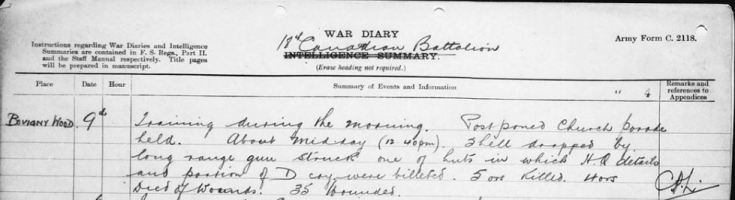 WAR DIARY
18th Canadian Battalion
INTELLIGENCE SUMMARY.
(Erase heading not required.)
Army Form C. 2118.
Instructions regarding War Diaries and Intelligence
Summaries are contained in F. S. Regs., Part II.
and the Staff Manual respectively. Title pages
will be prepared in manuscript.
Place Date Hour Summary of Events and Information Remarks and
references to
Appendices
9th Training during the morning. Postponed Church parade
held. About midday (12 40pm). Shell dropped by
long range gun struck one of huts in which H.Q details
and portion of D coy. were billeted. 5 ORs Killed.
Died of Wounds. 35 Wounded.